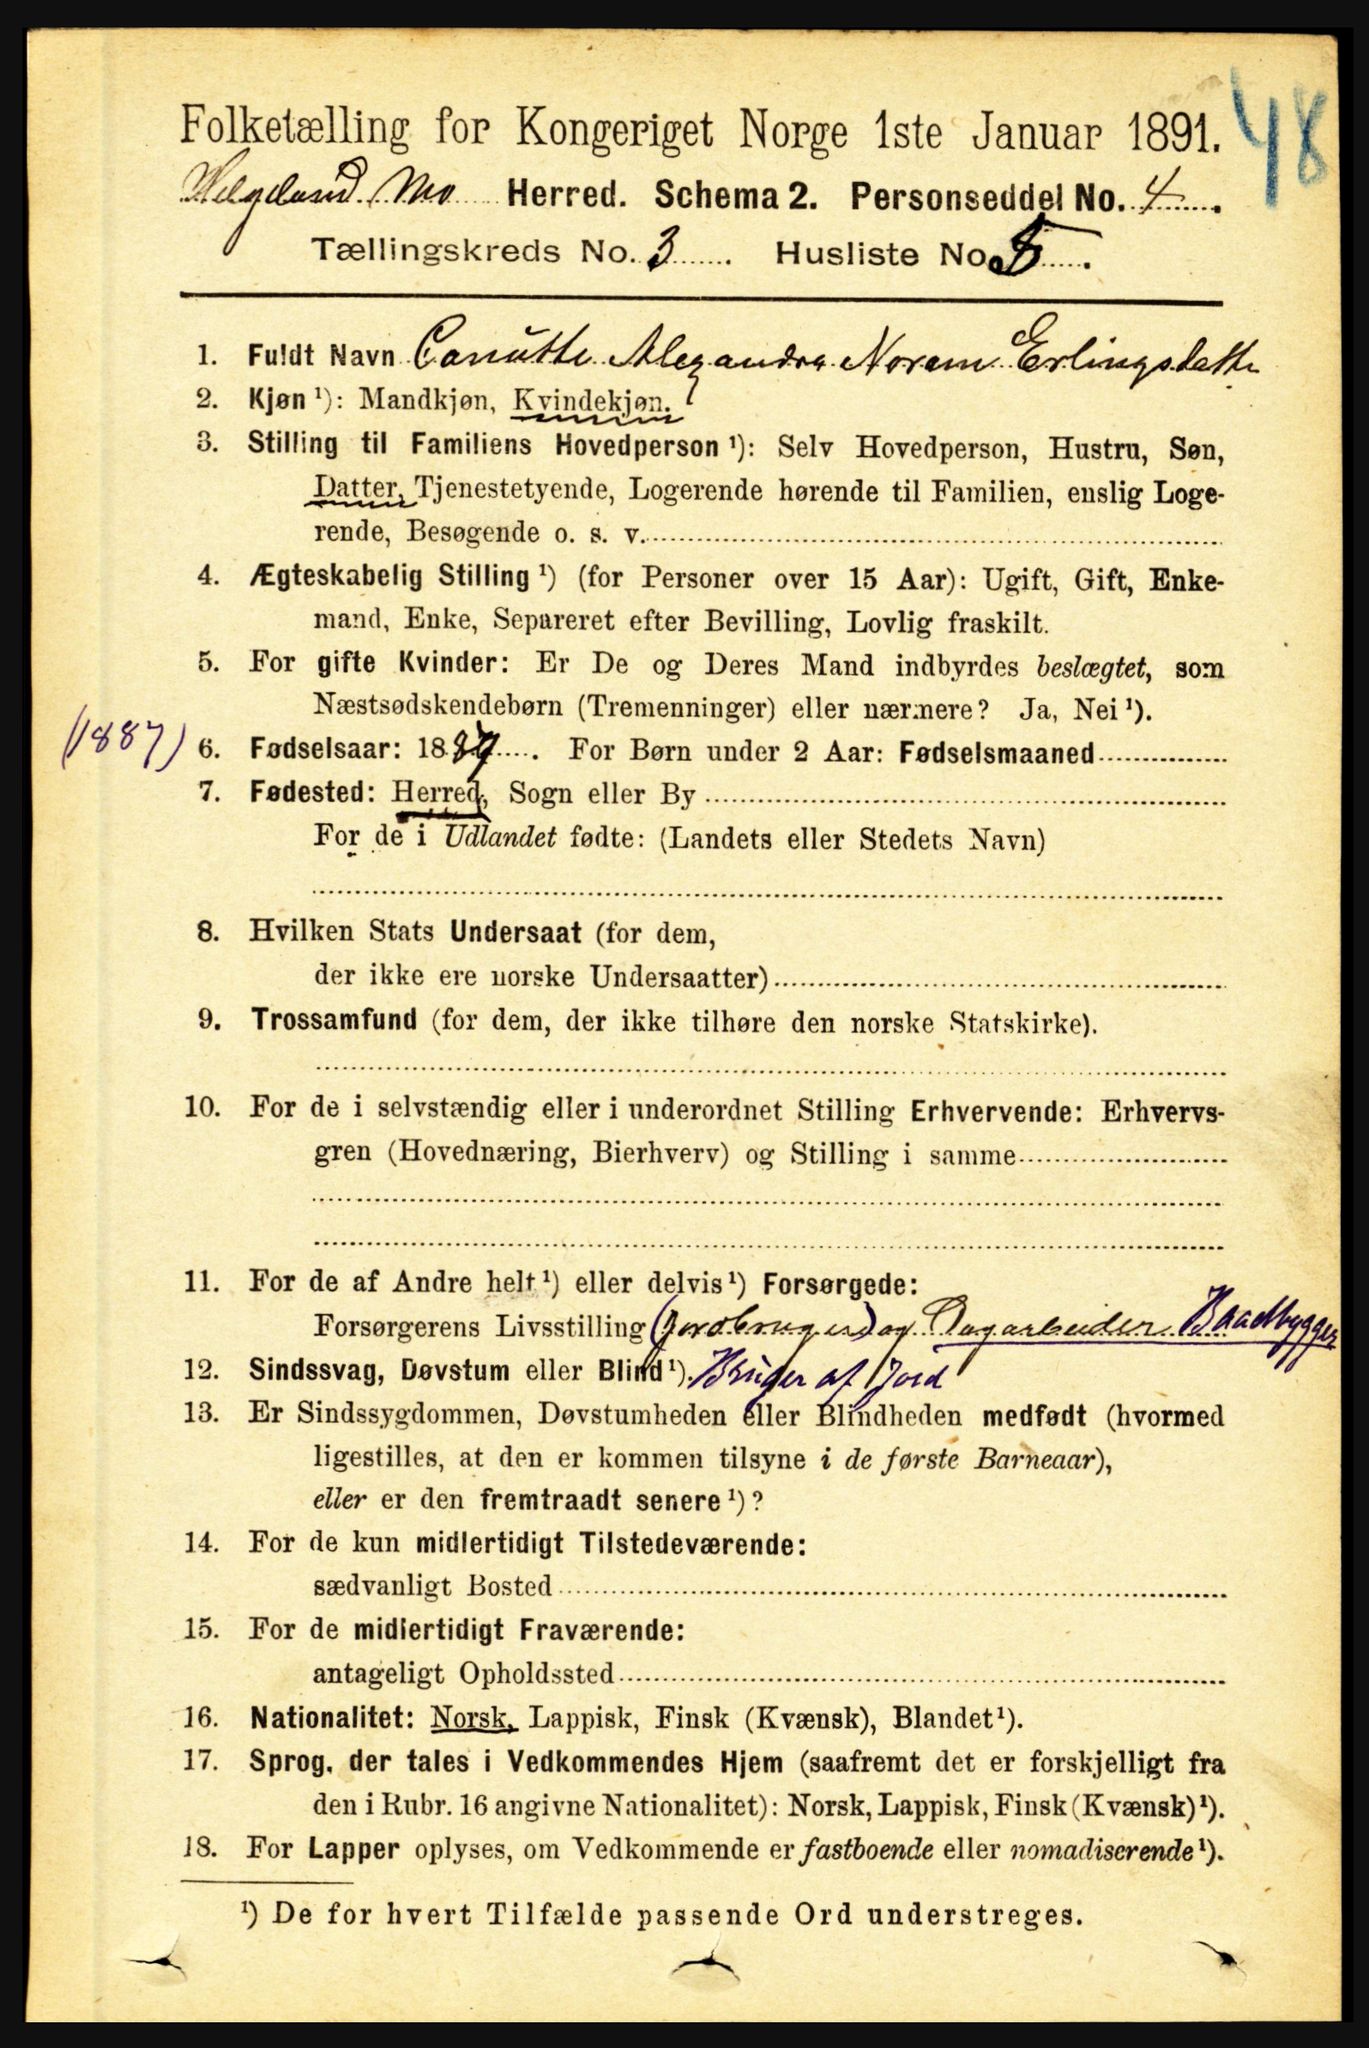 48
Folketælling for Kongeriget Norge 1ste Januar 1891.
Helgeland Mo Herred. Schema 2. Personseddel No. 4.
Tællingskreds No. 3. Husliste No. 5.
1. Fuldt Navn Canutte Alexandra Norem Erlingsdatter
2. Kjøn ¹): Mandkjøn, Kvindekjøn.
3. Stilling til Familiens Hovedperson ¹): Selv Hovedperson, Hustru, Søn,
Datter, Tjenestetyende, Logerende hørende til Familien, enslig Loge-
rende, Besøgende o. s. v.
4. Ægteskabelig Stilling ¹) (for Personer over 15 Aar): Ugift, Gift, Enke-
mand, Enke, Separeret efter Bevilling, Lovlig fraskilt.
5. For gifte Kvinder: Er De og Deres Mand indbyrdes beslægtet, som
Næstsødskendebørn (Tremenninger) eller nærmere? Ja, Nei ¹).
(1887) 6. Fødselsaar: 1887. For Børn under 2 Aar: Fødselsmaaned
7. Fødested: Herred, Sogn eller By
For de i Udlandet fødte: (Landets eller Stedets Navn)
8. Hvilken Stats Undersaat (for dem,
der ikke ere norske Undersaatter)
9. Trossamfund (for dem, der ikke tilhøre den norske Statskirke).
10. For de i selvstændig eller i underordnet Stilling Erhvervende: Erhvervs-
gren (Hovednæring, Bierhverv) og Stilling i samme
11. For de af Andre helt ¹) eller delvis ¹) Forsørgede:
Forsørgerens Livsstilling (Jordbruger) og Dagarbeider Baadbygger
12. Sindssvag, Døvstum eller Blind ¹). Bruger af Jord
13. Er Sindssygdommen, Døvstumheden eller Blindheden medfødt (hvormed
ligestilles, at den er kommen tilsyne i de første Barneaar),
eller er den fremtraadt senere ¹)?
14. For de kun midlertidigt Tilstedeværende:
sædvanligt Bosted
15. For de midlertidigt Fraværende:
antageligt Opholdssted
16. Nationalitet: Norsk, Lappisk, Finsk (Kvænsk), Blandet ¹).
17. Sprog, der tales i Vedkommendes Hjem (saafremt det er forskjelligt fra
den i Rubr. 16 angivne Nationalitet): Norsk, Lappisk, Finsk (Kvænsk) ¹).
18. For Lapper oplyses, om Vedkommende er fastboende eller nomadiserende ¹).
¹) De for hvert Tilfælde passende Ord understreges.